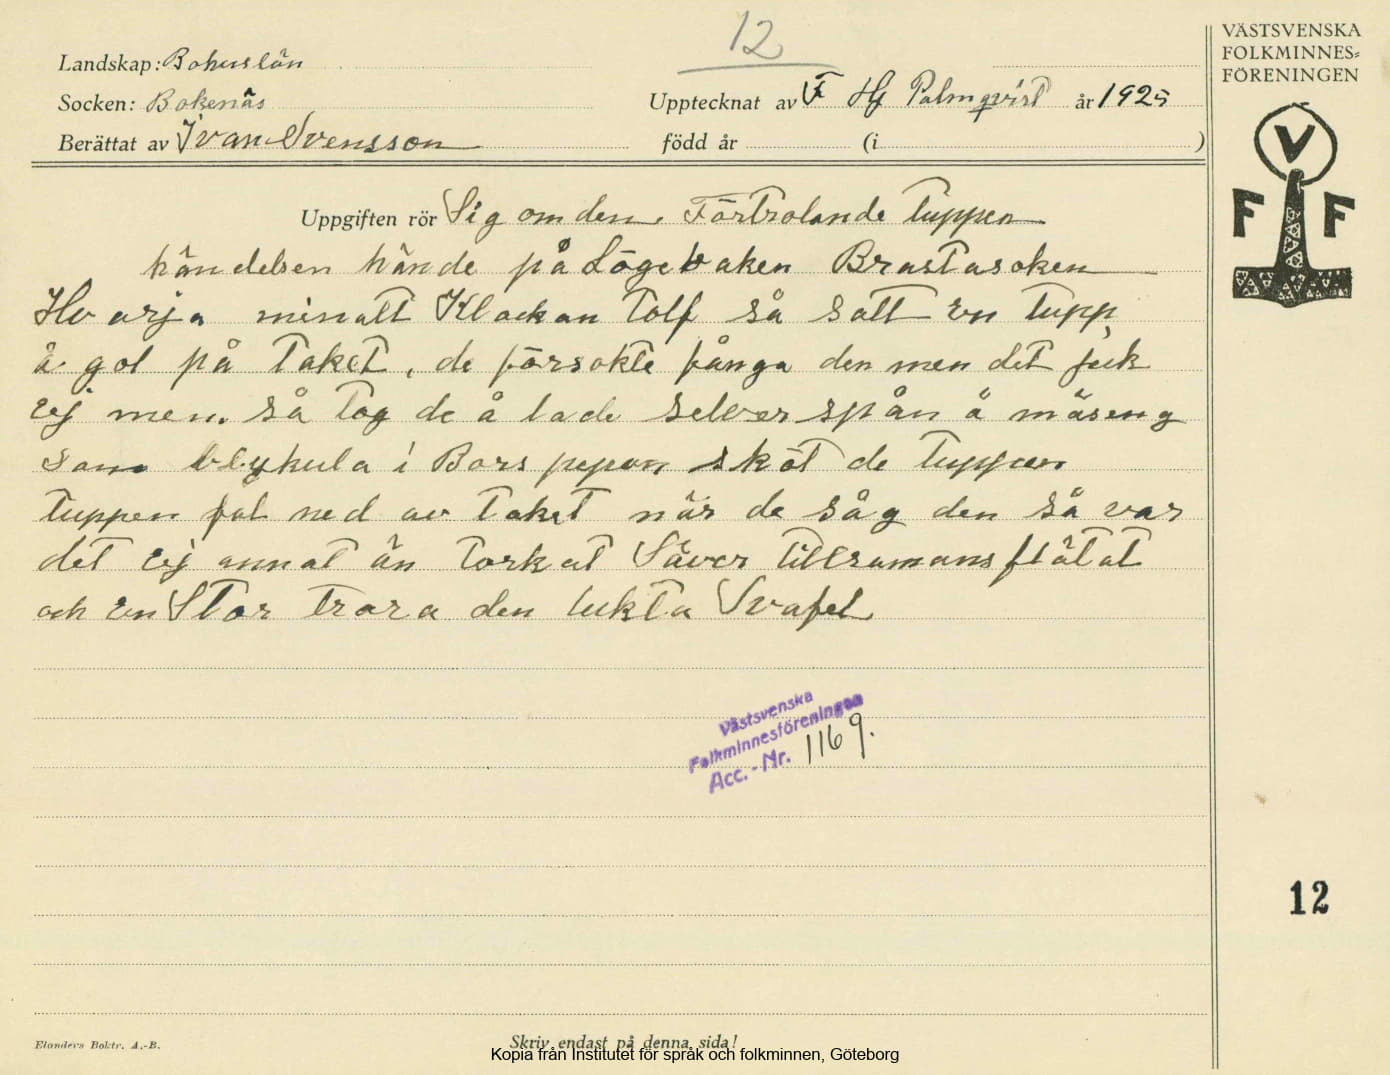 12
VÄSTSVENSKA
FOLKMINNES-
FÖRENINGEN
Landskap: Bohuslän
Socken: Bokenäs
Upptecknat av F Hj Palmqvist år 1925
Berättat av Ivan Svensson född år (i )
V
F F
Uppgiften rör Sig om den Förtrolande tuppen
händelsen hände på Lögebaken Brastasoken
Hvarja minatt Klockan tolf så satt en tupp
å gol på taket, de försokte fånga den men det feck
ej men så tog de å lade selver spån å mäseng
som blykula i Bors pepan sköt de tuppen
tuppen fal ned av taket når de såg den så var
det ej annat än torkat Säver tillsamans flätat
och en Stor trara den lukta Svafel
Västsvenska
Folkminnesföreningen
Acc.-Nr. 1169.
12
Elanders Boktr. A.-B.
Skriv endast på denna sida!
Kopia från Institutet för språk och folkminnen, Göteborg